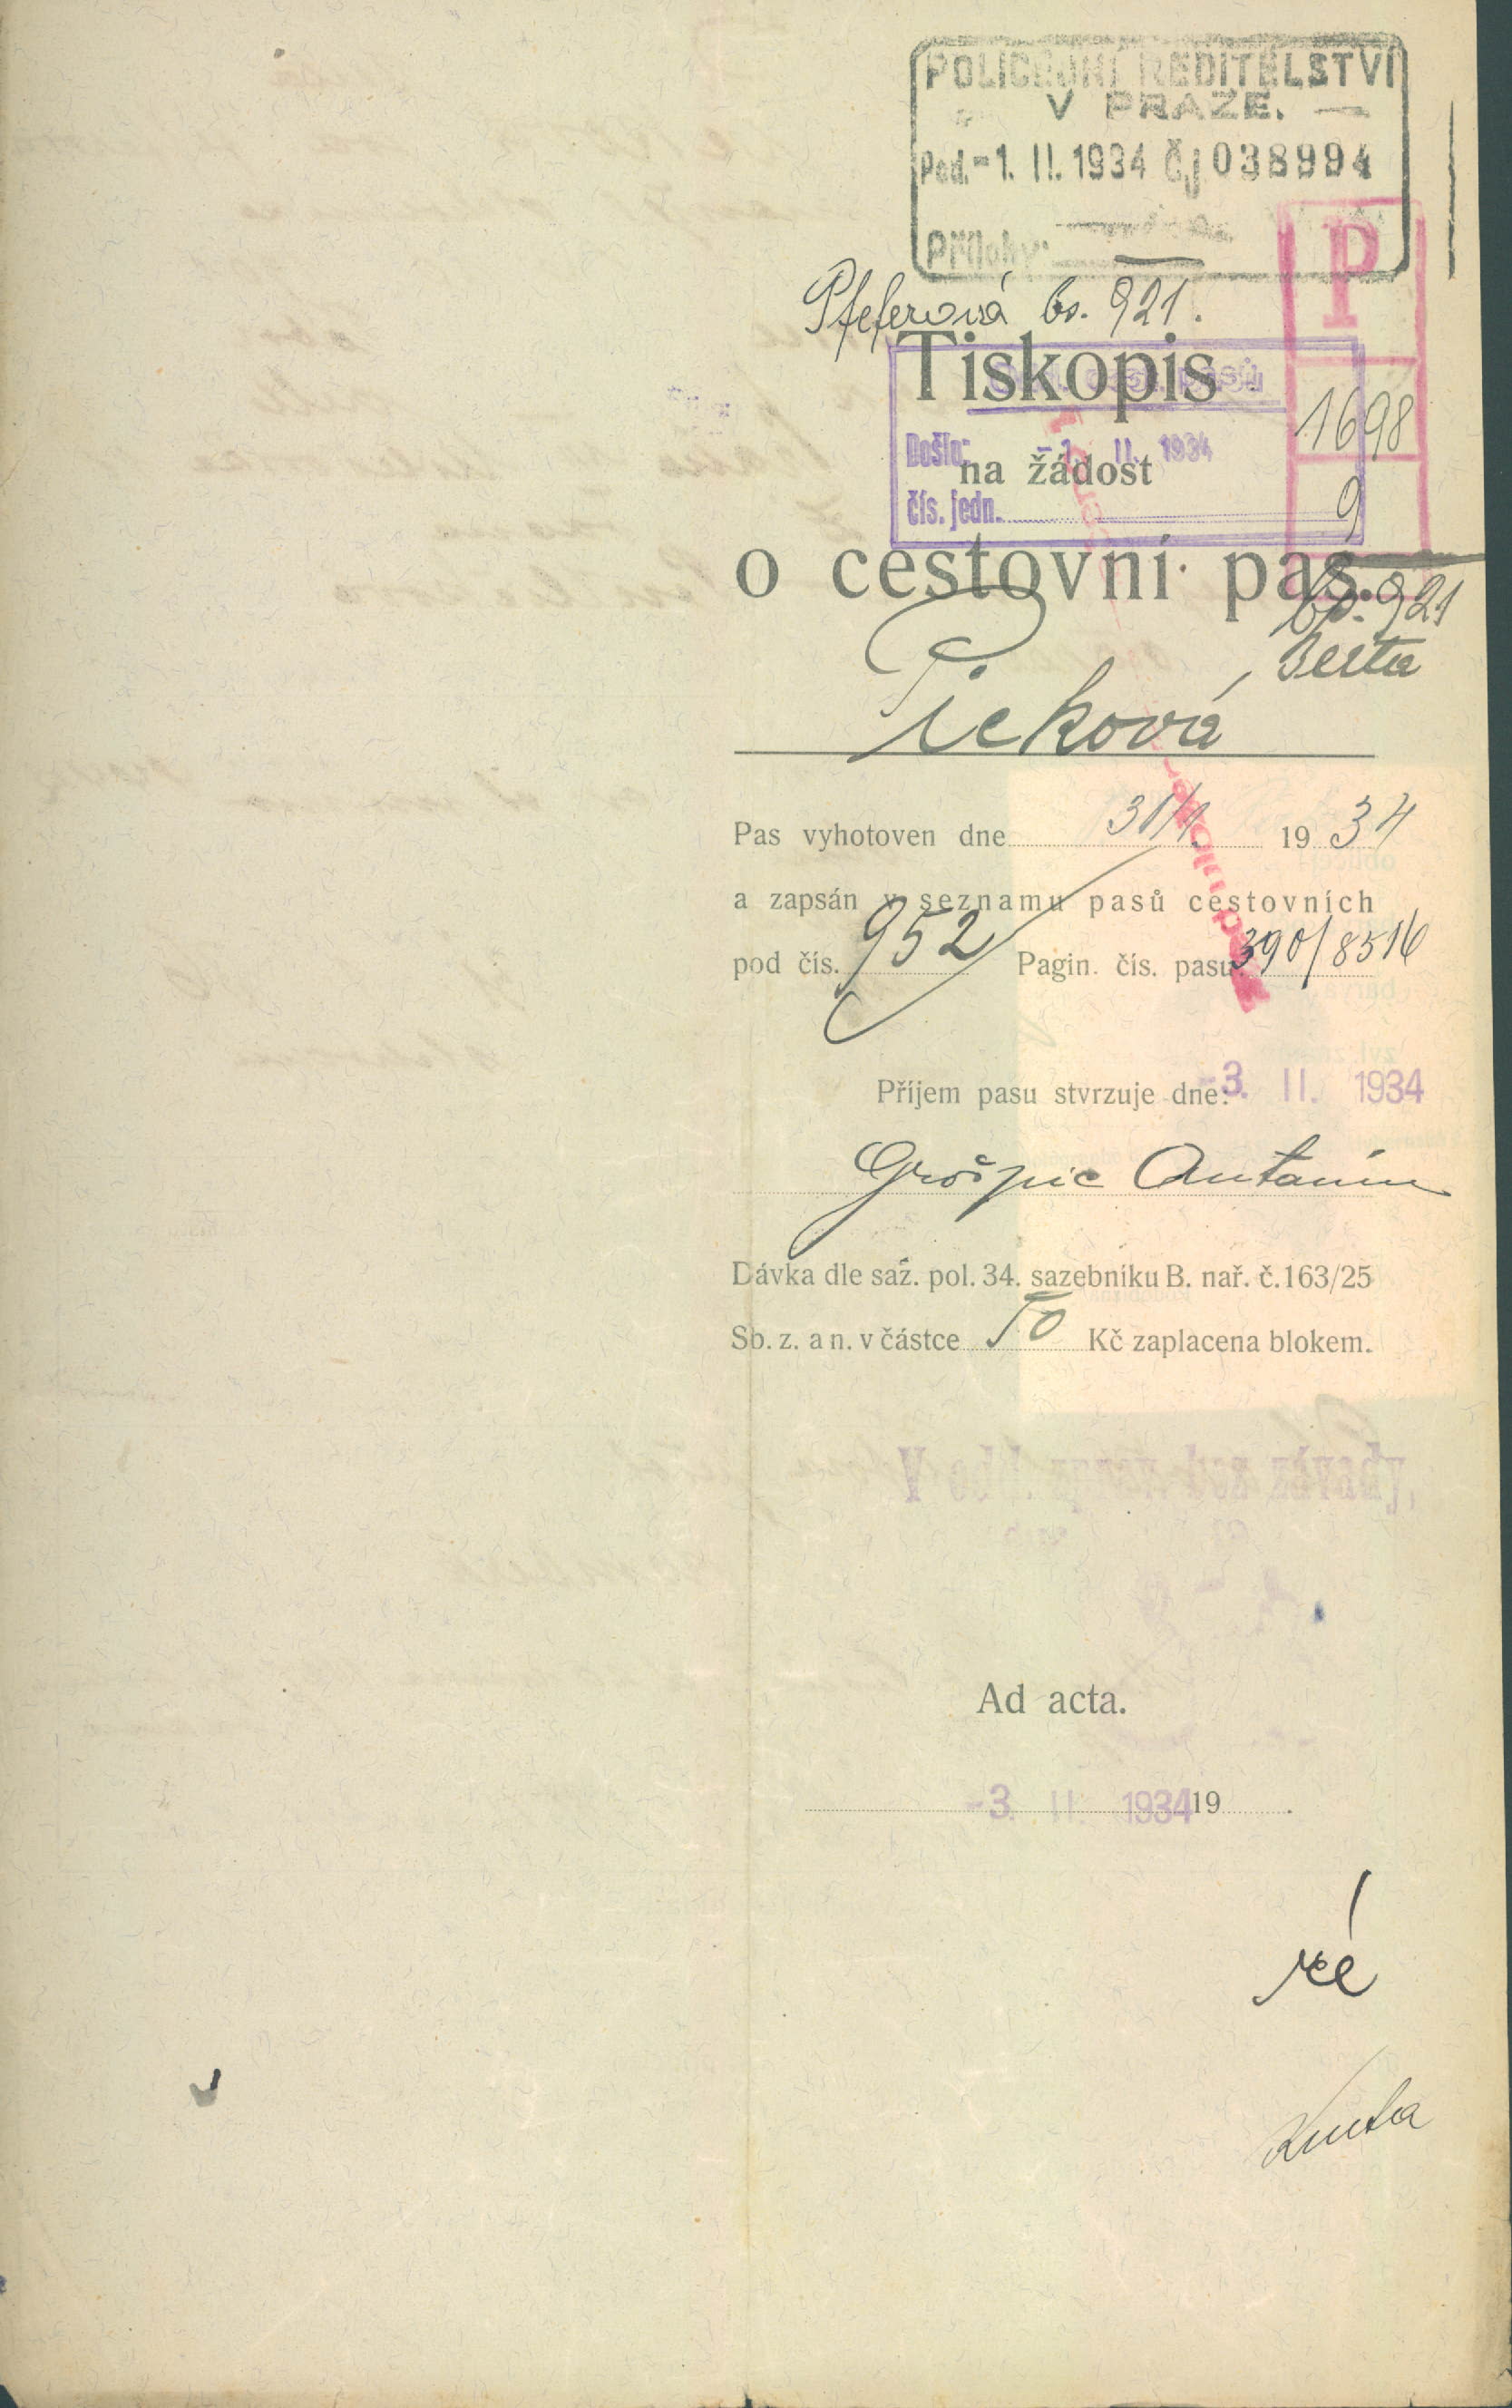 POLICEJNÍ ŘEDITELSTVÍ
V PRAZE.
Pod. -1. II. 1934 Č.j 038994
Přílohy:
P
Pfeferová 60. 921.
Tiskopis
1698
Došlo: -1. II. 1934
na žádost
čís. jedn.
9
o cestovní pas.
60. 921
Berta
Picková
Pas vyhotoven dne 31/1 1934
a zapsán v seznamu pasů cestovních
pod čís. 952 Pagin. čís. pasu: 390/8516
Příjem pasu stvrzuje dne: -3. II. 1934
Grošpic Antonín
Dávka dle saz. pol. 34. sazebníku B. nař. č. 163/25
Sb. z. a n. v částce 50 Kč zaplacena blokem.
V odd. zpráv. bez závady,
Ad acta.
-3. II. 1934 19 .